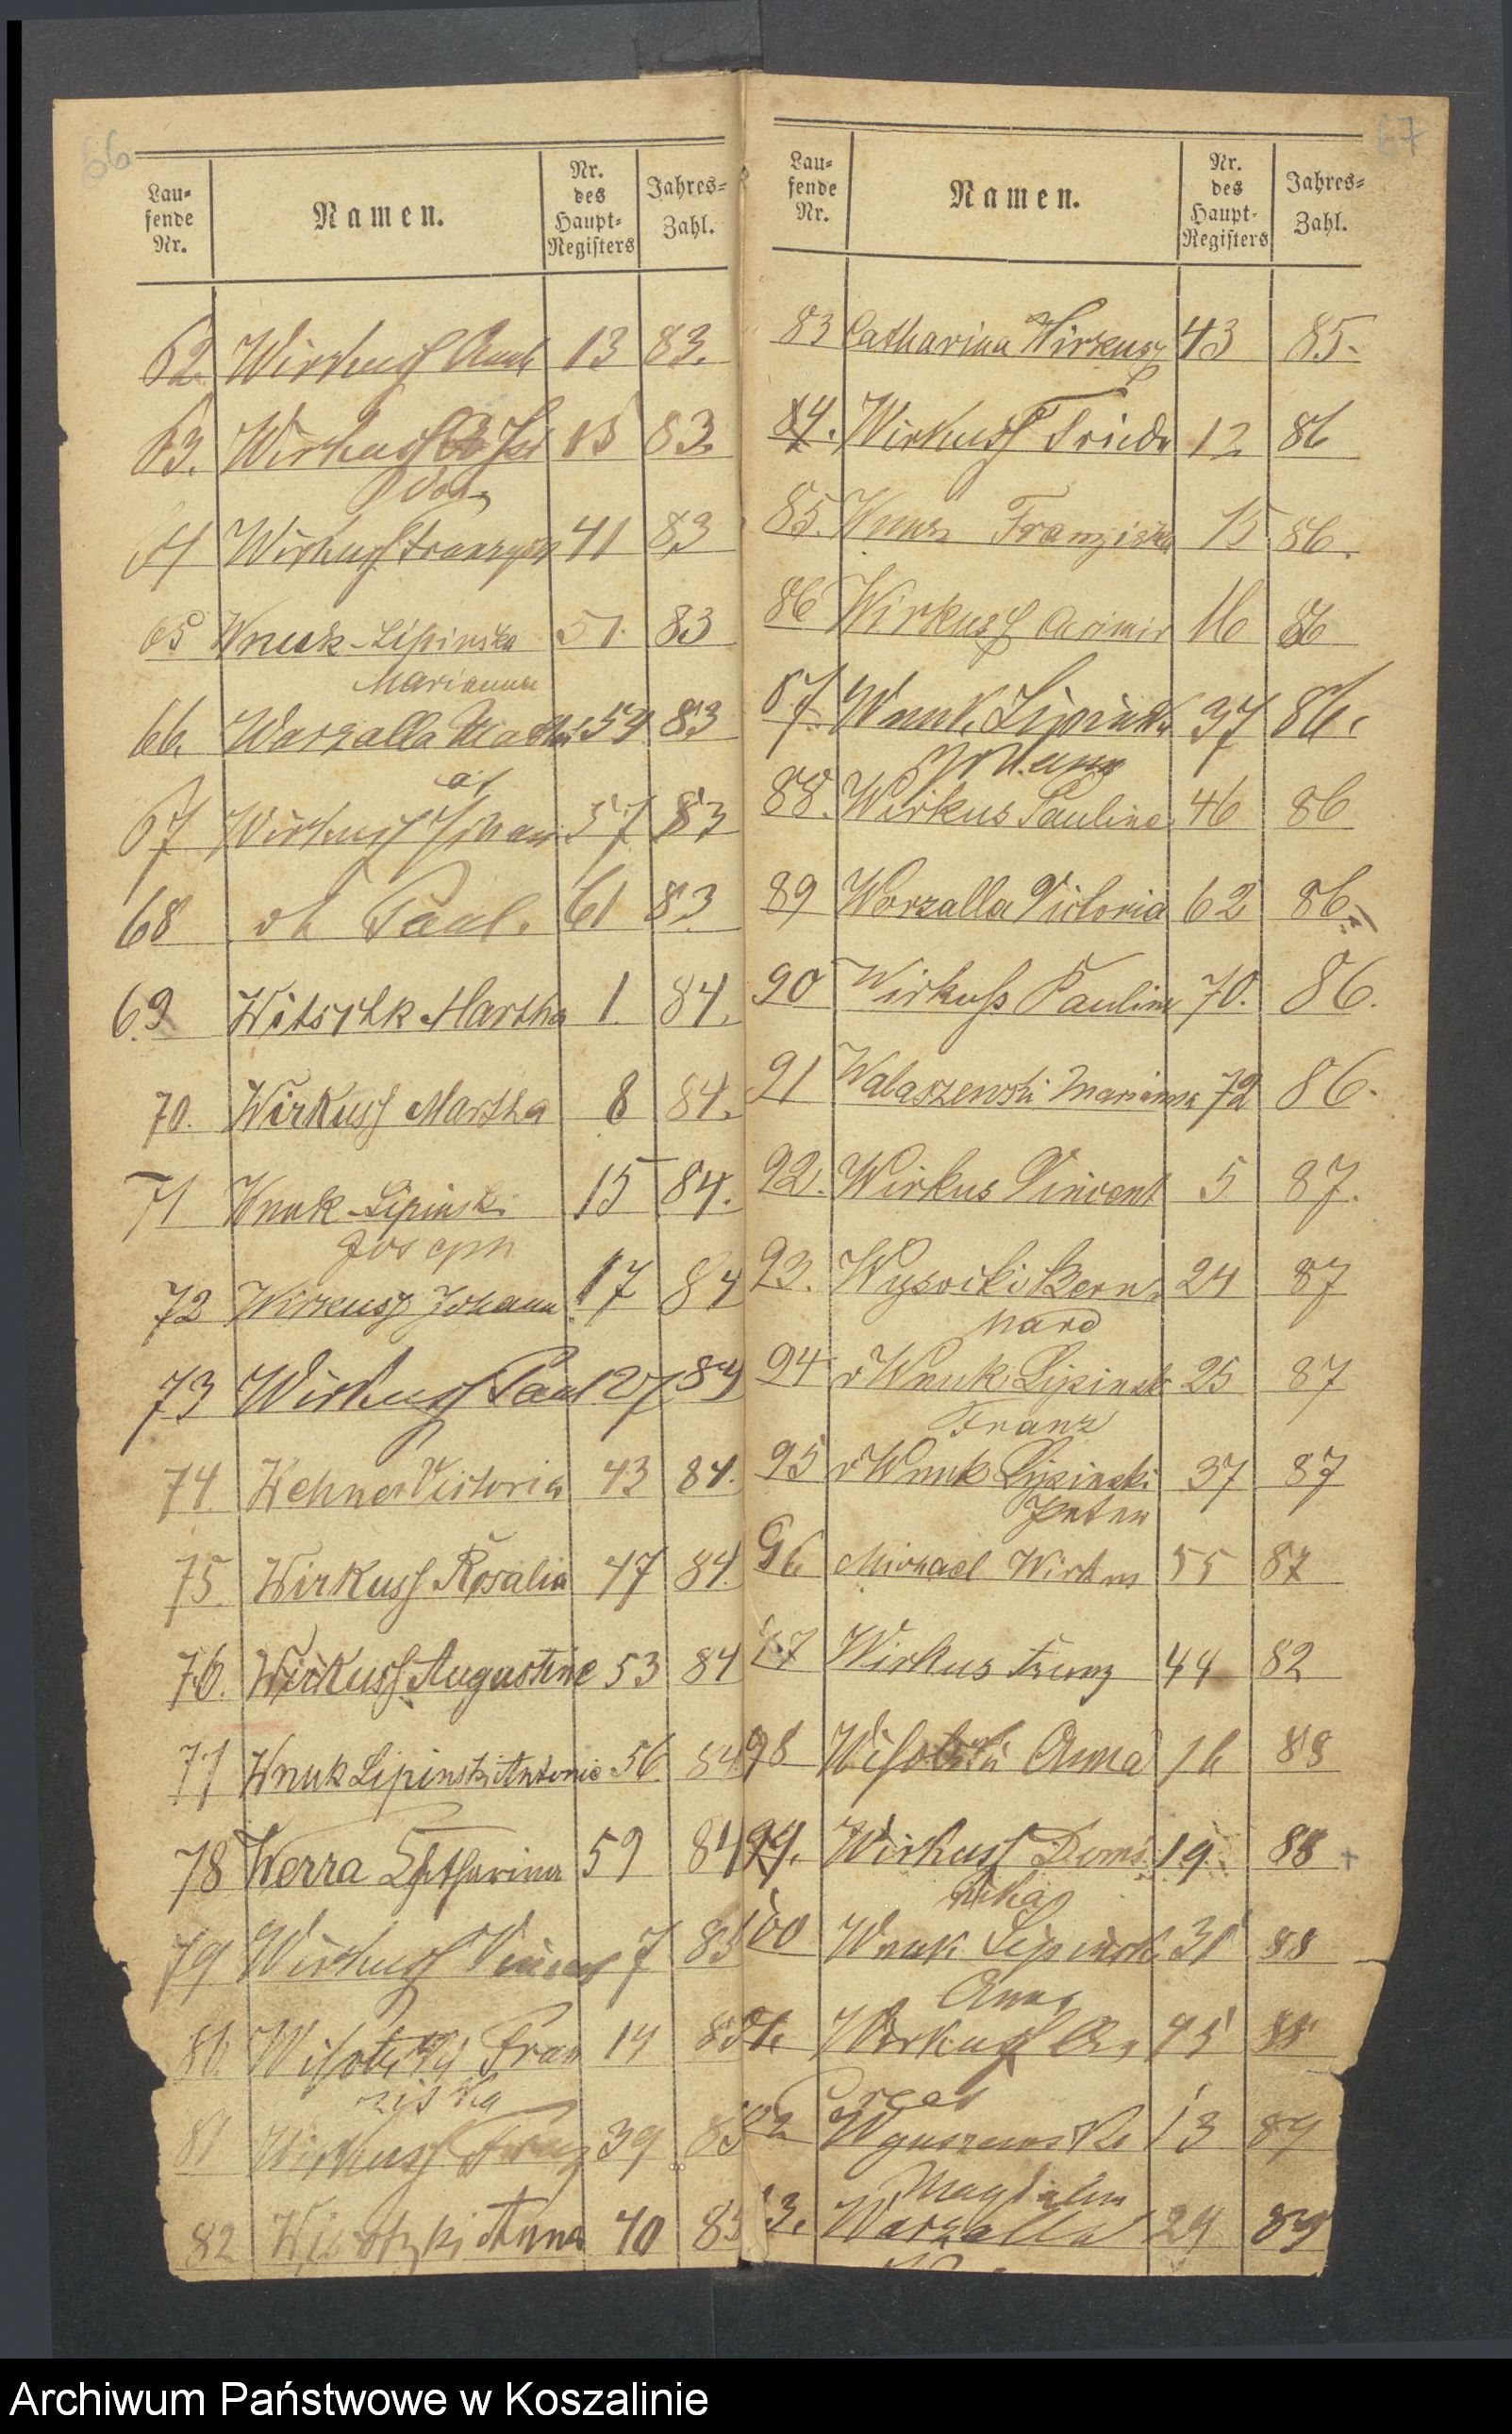 66
Lau=
fende
Nr.
Namen.
Nr.
des
Haupt=
Registers
Jahres=
Zahl.
62. Wirkuss 13 83.
63. Wirkuss 15 83
64 Wirkuss 41 83
65 Wnuk-Lipinska 51. 83
Marianna
66. Warzalla 54 83
67 Wirkuss Johann 57 83
68 Paul. 61 83
69 Witschk Martha 1. 84.
70. Wirkuss Martha 8 84.
71 Wnuk-Lipinski 15 84.
Joseph
72 Wirkusz Johann 17 84
73 Wirkuss Paul 27 84
74. Wehner Victoria 43 84.
75. Wirkuss Rosalia 47 84.
76. Wirkuss Augustine 53 84
77 Wnuk Lipinski Antonie 56. 84
78 Werra Catharina 59 84
79 Wirkuss 7 85
80. Fran 14 85
ziska
81 Wirkuss Franz 39 85
82 Anna 40 85
67
Lau=
fende
Nr.
Namen.
Nr.
des
Haupt=
Registers
Jahres=
Zahl.
83 Catharina Wirkusz 43 85.
84. Wirkuss 12 86
85. Franziska 15 86.
86 Wirkuss Casimir 16 86
87 Wnuk Lipinski 37 86.
Johann
88. Wirkus Pauline 46 86
89 Worzalla Victoria 62 86
90 Wirkuss Pauline 70. 86.
91 Walaszewski Marianna 72 86.
92. Wirkus Vincent 5 87.
93. Wysocki Bern= 24 87
hard
94 v Wnuk Lipinski 25 87
Franz
95 v Wnuk Lipinski 37 87
Peter
96 Michael Wirkus 55 87
97 Wirkus Franz 44 82
98 Anna 16 88
99. Wirkuss Domi 19. 88
nika
100 Wnuk Lipinski 31 88
Anna
Wirkuss 45 88
13 89
Magdalena
3. Warzalla 24 89
Archiwum Państwowe w Koszalinie